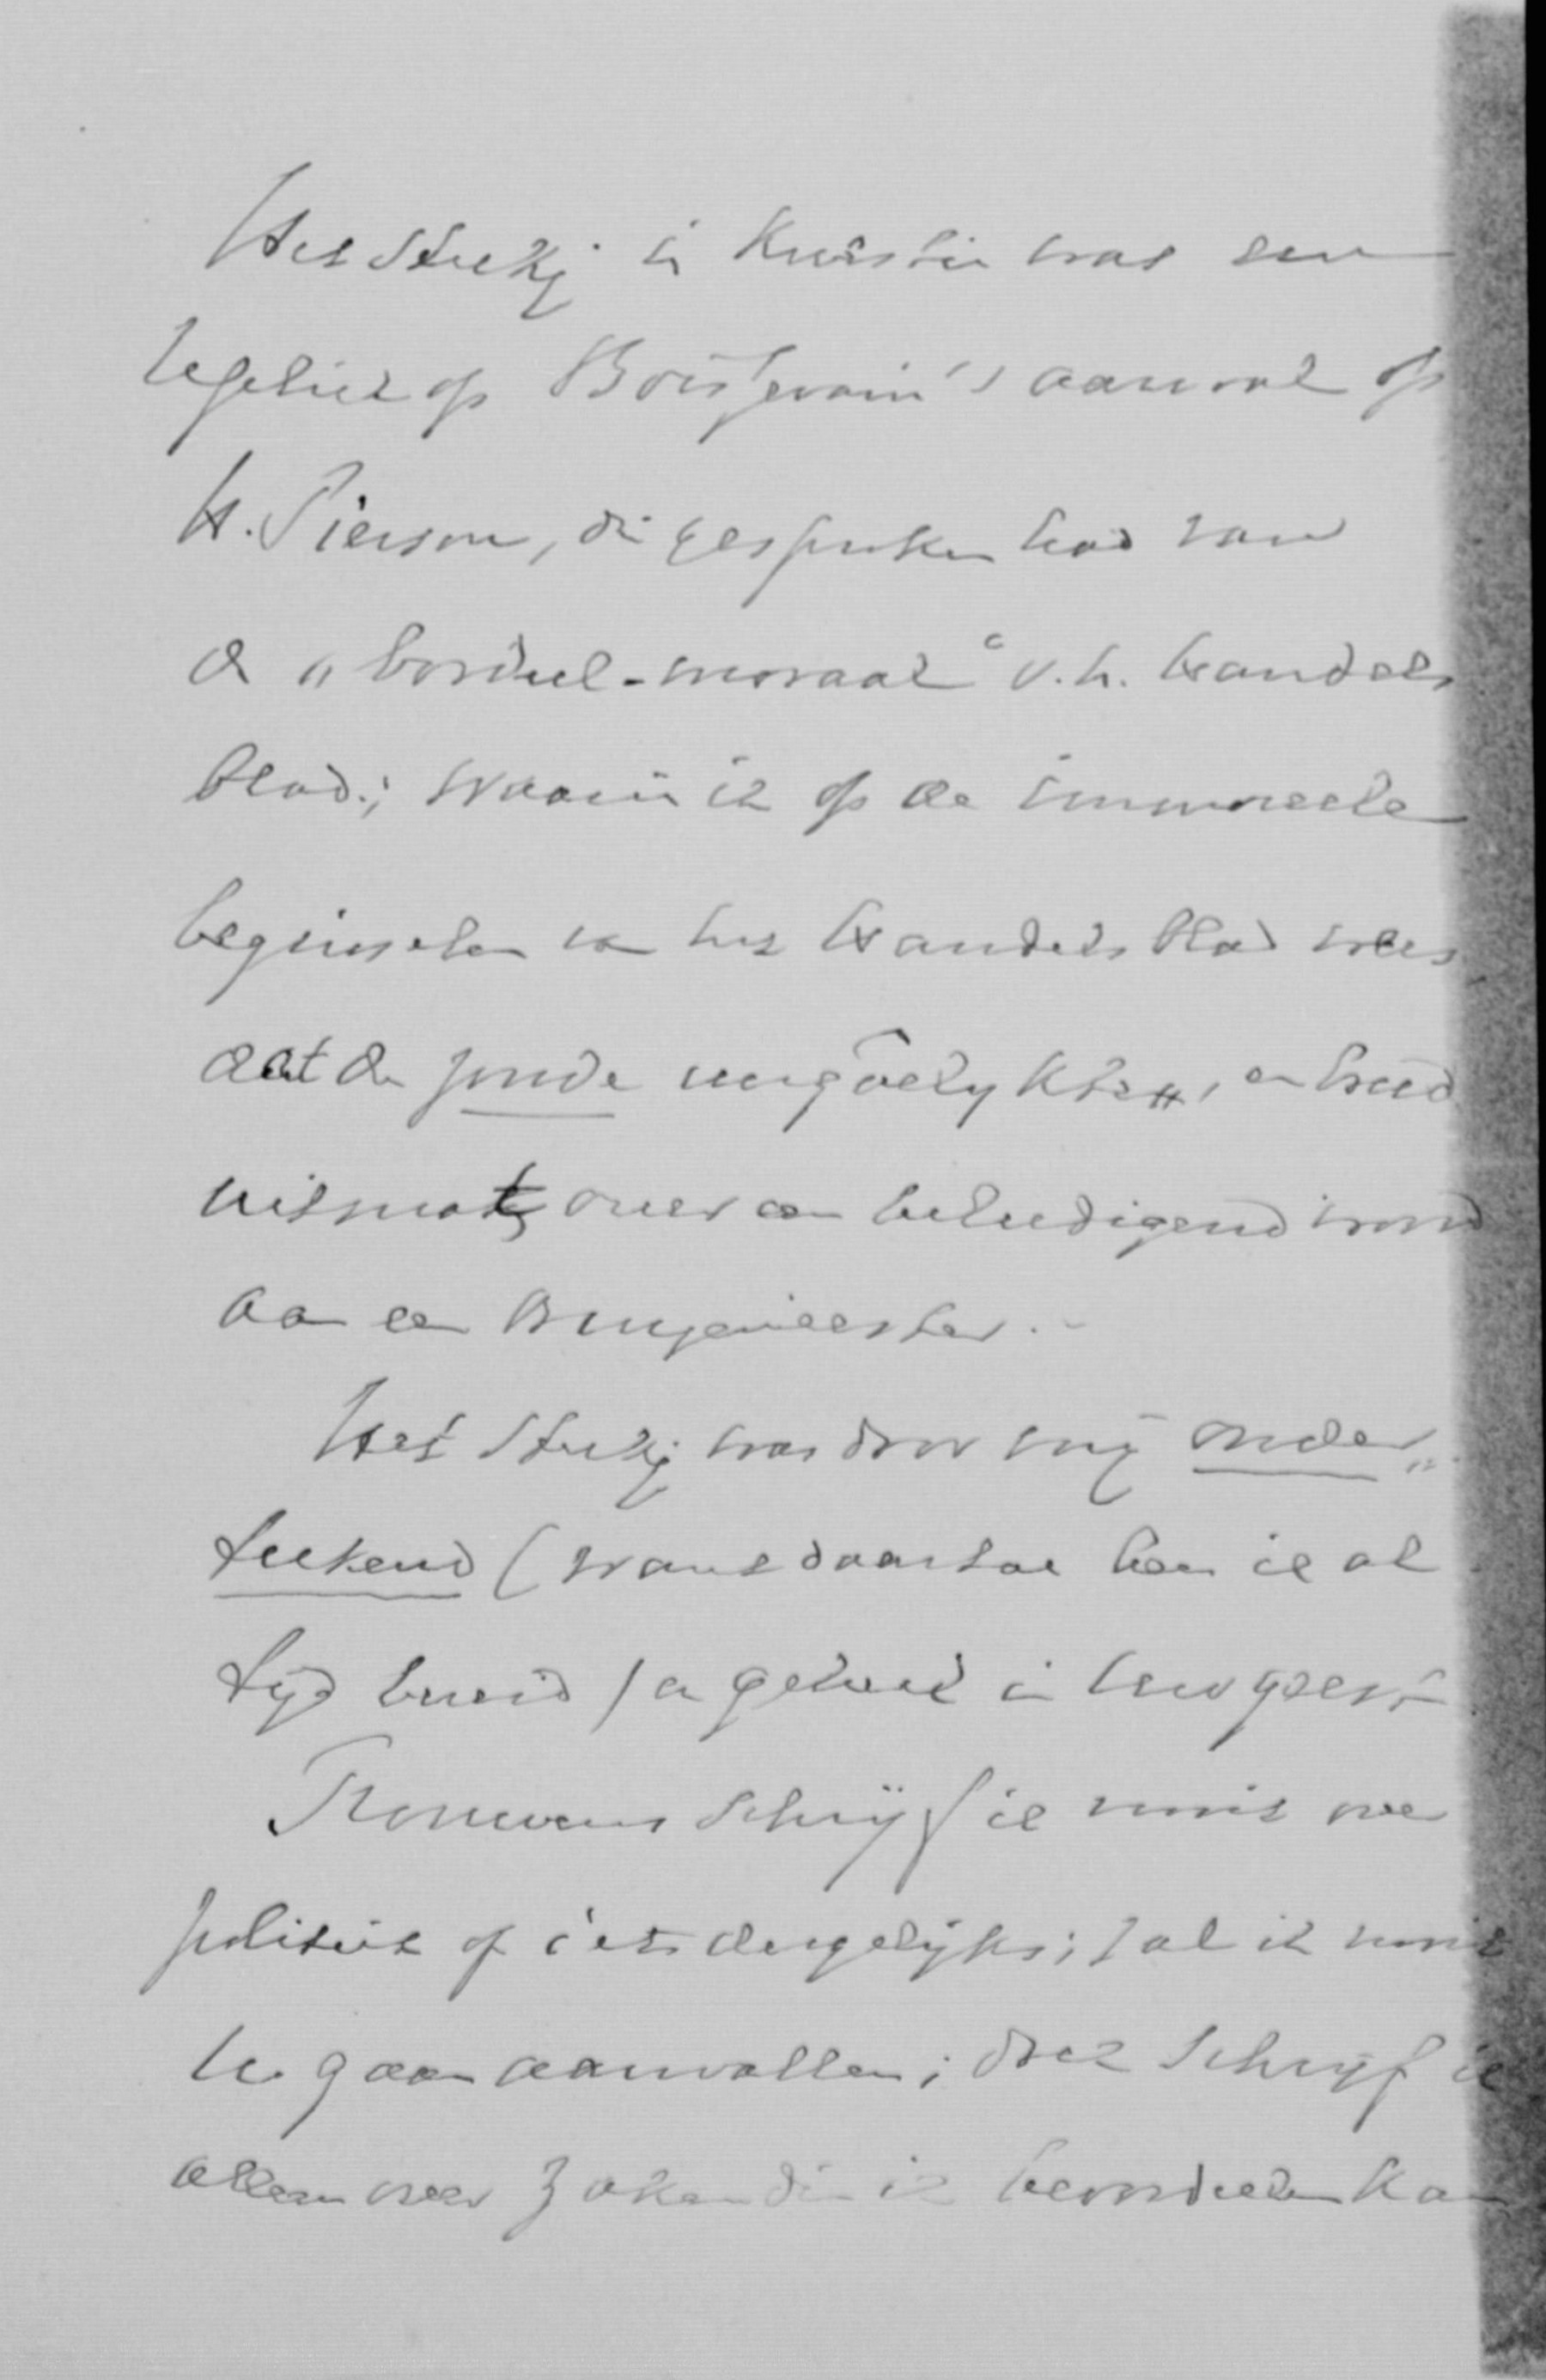 Het stukje in kwestie was een
repliek op Boissevain's aanval op
H. Pierson, die gesproken had van
de „bordeel-moraal“ v.h. Handels
blad; waarin ik op de immoreele
beginselen van het Handelsblad wees
dat de zonde vergoelykte, en breed
uitmat over een beleedigend woord
aan een Burgemeester. -
Het stukje was door mij onder„
teekend (want daartoe ben ik al
tyd bereid) en geheel in
Trouwens schrijf ik nooit over
politiek of iets dergelijks; zal ik nooit
te gaan aanvallen; doch schrijf ik
alleen over zaken die ik beoordeelen kan